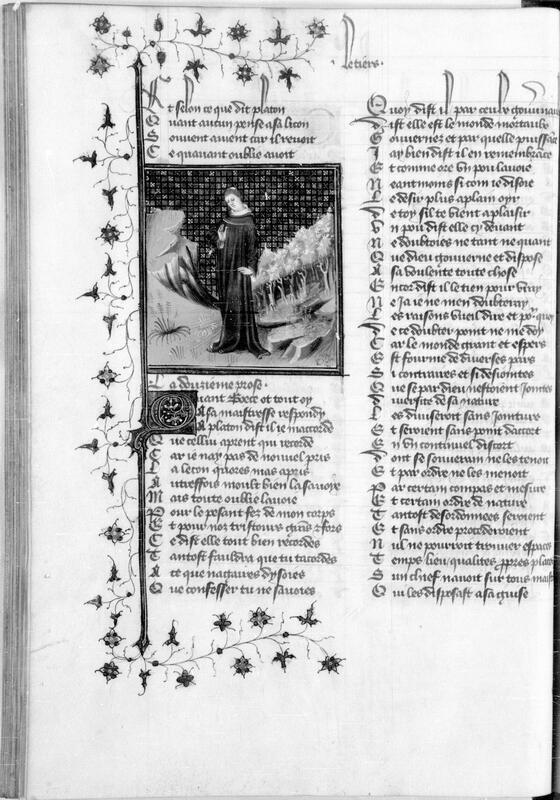 le tiers.
Et selon ce que dit platon
Quant aucun pense a sa licon
Souvent avient car il revoit
Ce quavant oublie avoit
La douzieme prose.
Quant Boece ot tout oy
A sa maistresse respondy
A platon dist il ie maccorde
Que celluy aprent qui recorde
Car ie nay pas de nouvel pris
La lecon mas apris
Autreffois moult bien la savoye
Mais toute oublie lavoie
Pour le pesant fez de mon corps
Et pour noz tristours
Ce dist elle tout bien recordes
Tantost fauldra que tu tacordes
A ce que nagaires disoies
Que confesser tu ne savoies
Quoy dist il par ceulx
Dist elle est le monde mortable
Gouvernez et par quelle puissance
Jay bien dist il en remembrance
Et comme ore bn pou lavoie
Neantmoins si com ie disoie
Le desir plus a plain oyr
De toy sil te vient a plaisir
Vn pou dist elle cy devant
Ne doubtoies ne tant ne quant
Que dieu gouverne et dispose
A sa voulente toute chose
Encor dist il le tien pour vray
Ne ja ie ne men doubteray
Les raisons vueil dire et
De ce doubter point ne me doy
Car le monde grant et espers
Est fourme de diverses pars
Si contraires et si desiointes
Que se par dieu nestoient iointes
Diversite de sa nature
Les diviseroit sans iointure
Et seroient sans point daccort
En vn continuel discort
Dont se souverain ne les tenoit
Et par ordre ne les menoit
Par certain compas et mesure
Et certain ordre de nature
Tantost desordonnees seroient
Et sans ordre procederoient
Nul ne pourroit trouver espaces
Temps lieu qualites
Sun chief navoit sur tous
Qui les disposast a sa guise